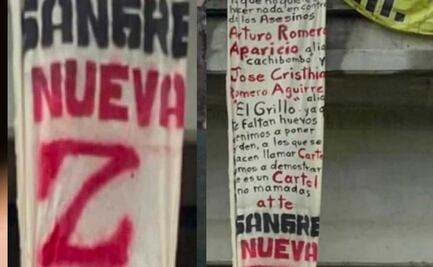 SANGRE
NUEVA
Z
hacer nada en contra
de los Asesinos
Arturo Romero
Aparicio alia
"cachibombo" y
Jose Cristhia
Romero Aguirre
"El Grillo" ya q
te Faltan huevos
venimos a poner
rden, a los que se
acen llamar Carte
mos a demostrar
e es un Cartel
no mamadas
atte
SANGRE
NUEVA